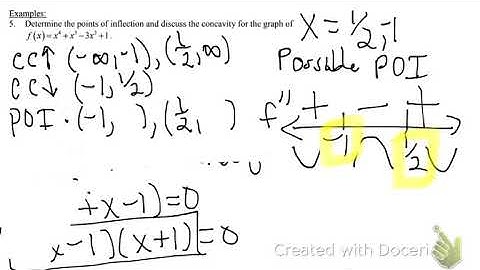 Examples:
5. Determine the points of inflection and discuss the concavity for the graph of
f(x) = x⁴ + x³ − 3x² + 1.
X = 1/2, -1
CC↑ (-∞, -1), (1/2, ∞)
Possible POI
CC↓ (-1, 1/2)
POI · (-1, ), (1/2, )
f'' + - +
-1 1/2
+x-1)=0
x-1)(x+1)=0
Created with Doceri